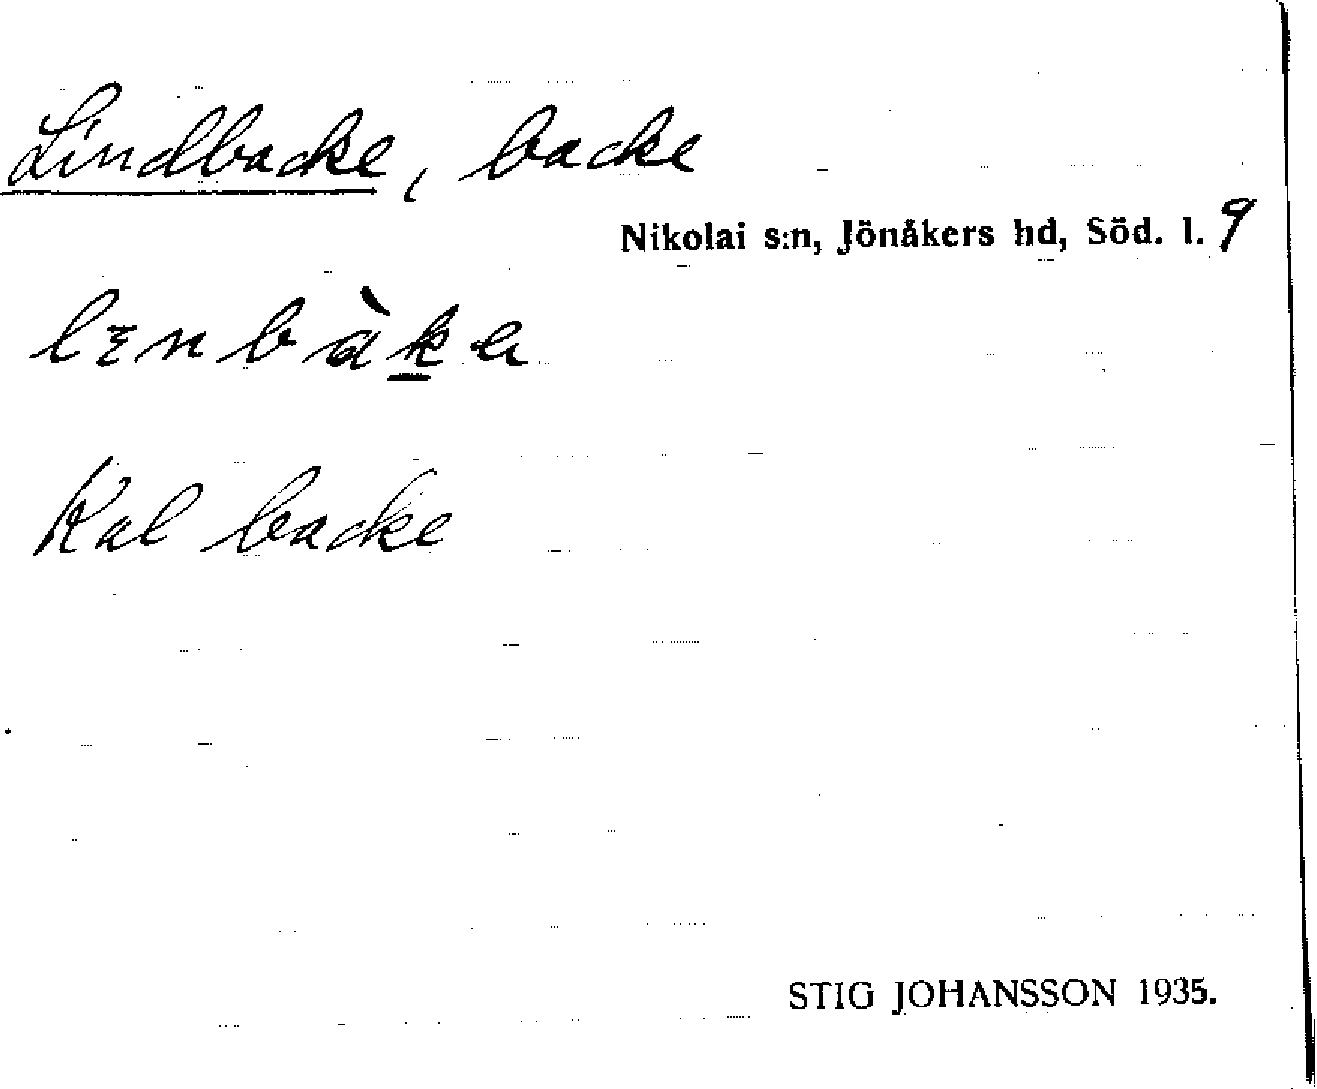 Lindbacke, backe
Nikolai s:n, Jönåkers hd, Söd. l. 9
Kal backe
STIG JOHANSSON 1935.